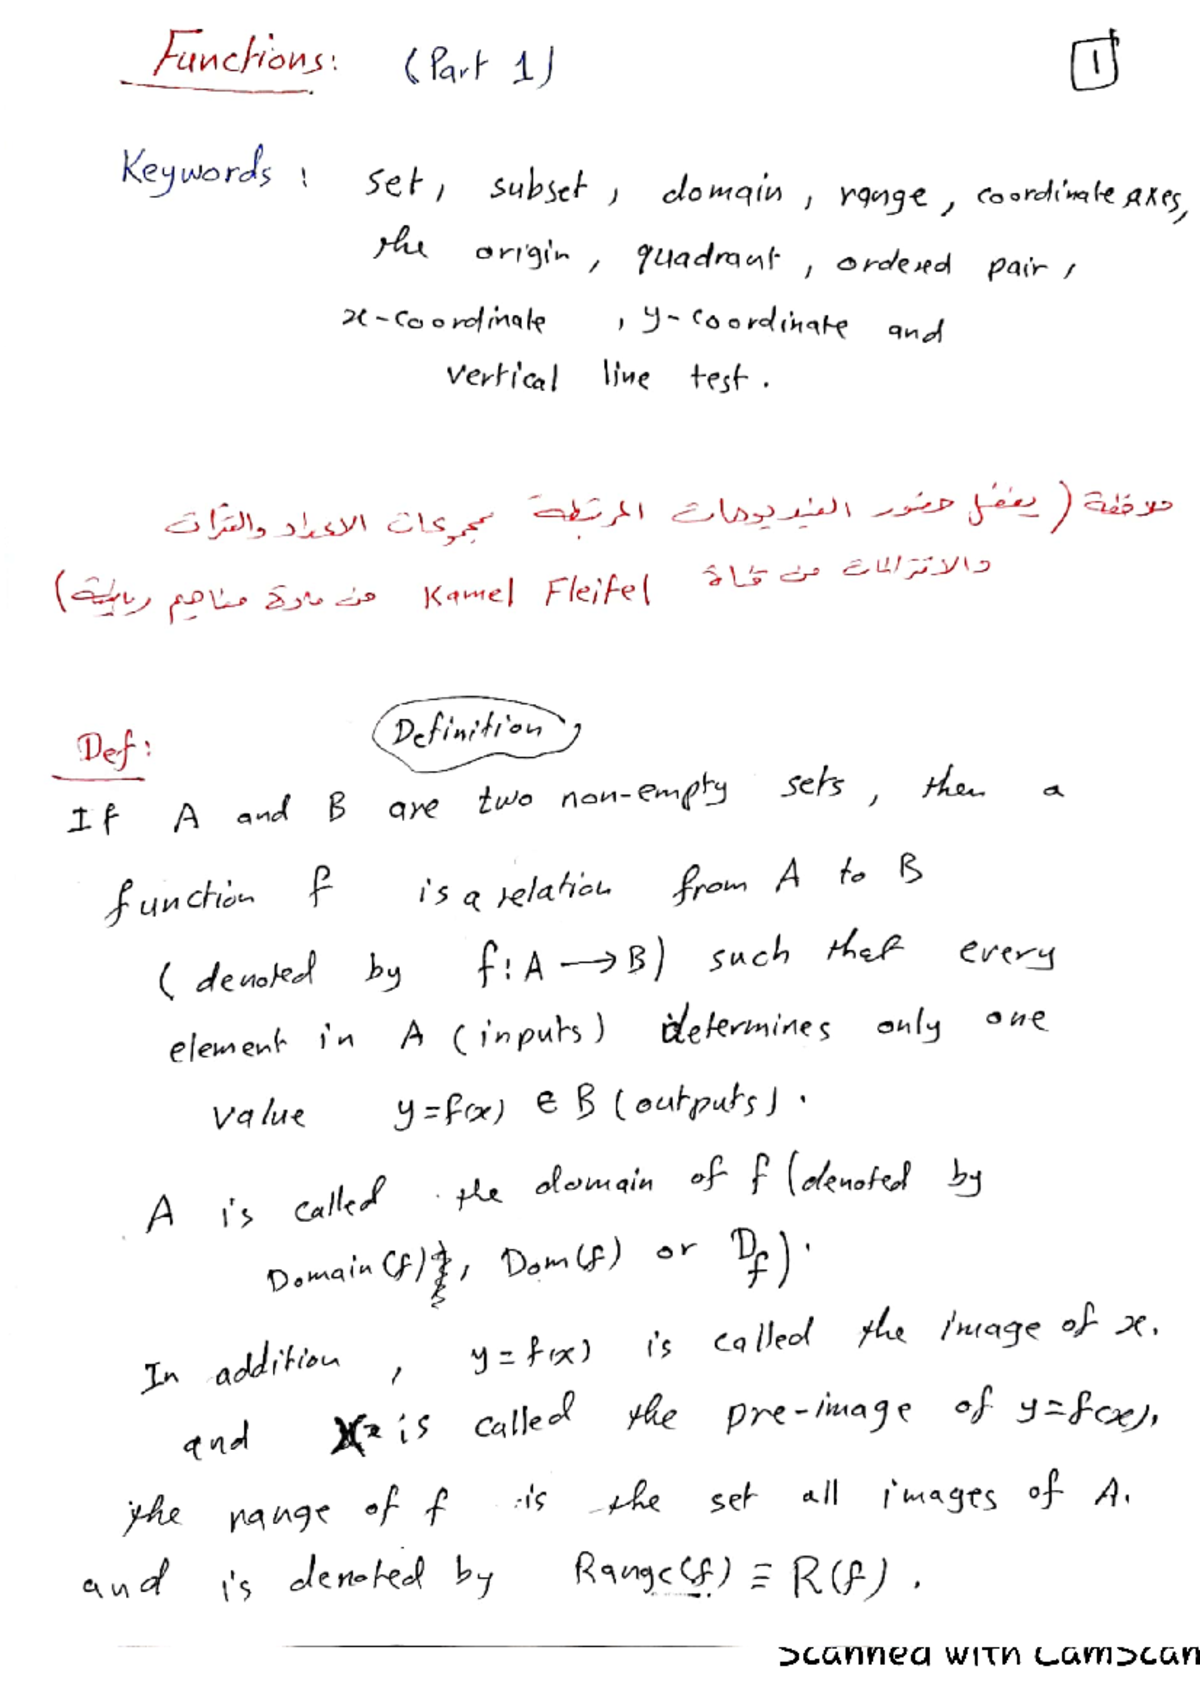 Functions: (Part 1)
1
Keywords: set, subset, domain, range, coordinate axes,
the origin, quadrant, ordered pair,
x-coordinate, y-coordinate and
vertical line test.
ملاحظة (يفضل حضور الفيديوهات المرتبطة بمجموعات الاعداد والفترات
والاقترانات من قناة Kamel Fleifel من مادة مفاهيم رياضية)
Def: Definition
If A and B are two non-empty sets, then a
function f is a relation from A to B
(denoted by f: A → B) such that every
element in A (inputs) determines only one
value y=f(x) ∈ B (outputs).
A is called the domain of f (denoted by
Domain(f), Dom(f) or D_f).
In addition, y=f(x) is called the image of x.
and x is called the pre-image of y=f(x).
the range of f is the set all images of A.
and is denoted by Range(f) ≡ R(f).
Scanned with CamScan